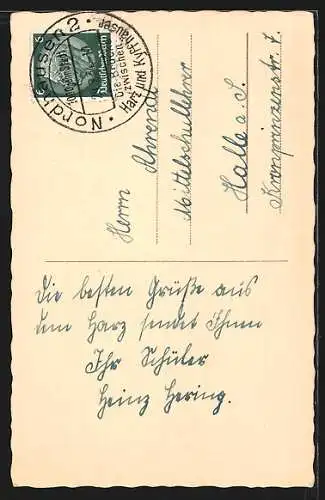 Nordhausen 2
Die Brücke
zwischen
Harz und Kyffhäuser
Deutsches Reich
6
Herrn Ahrendt
Mittelschullehrer
Halle a. S.
Kronprinzenstr. 7.
Die besten Grüße aus
dem Harz sendet Ihnen
Ihr Schüler
Heinz Hering.